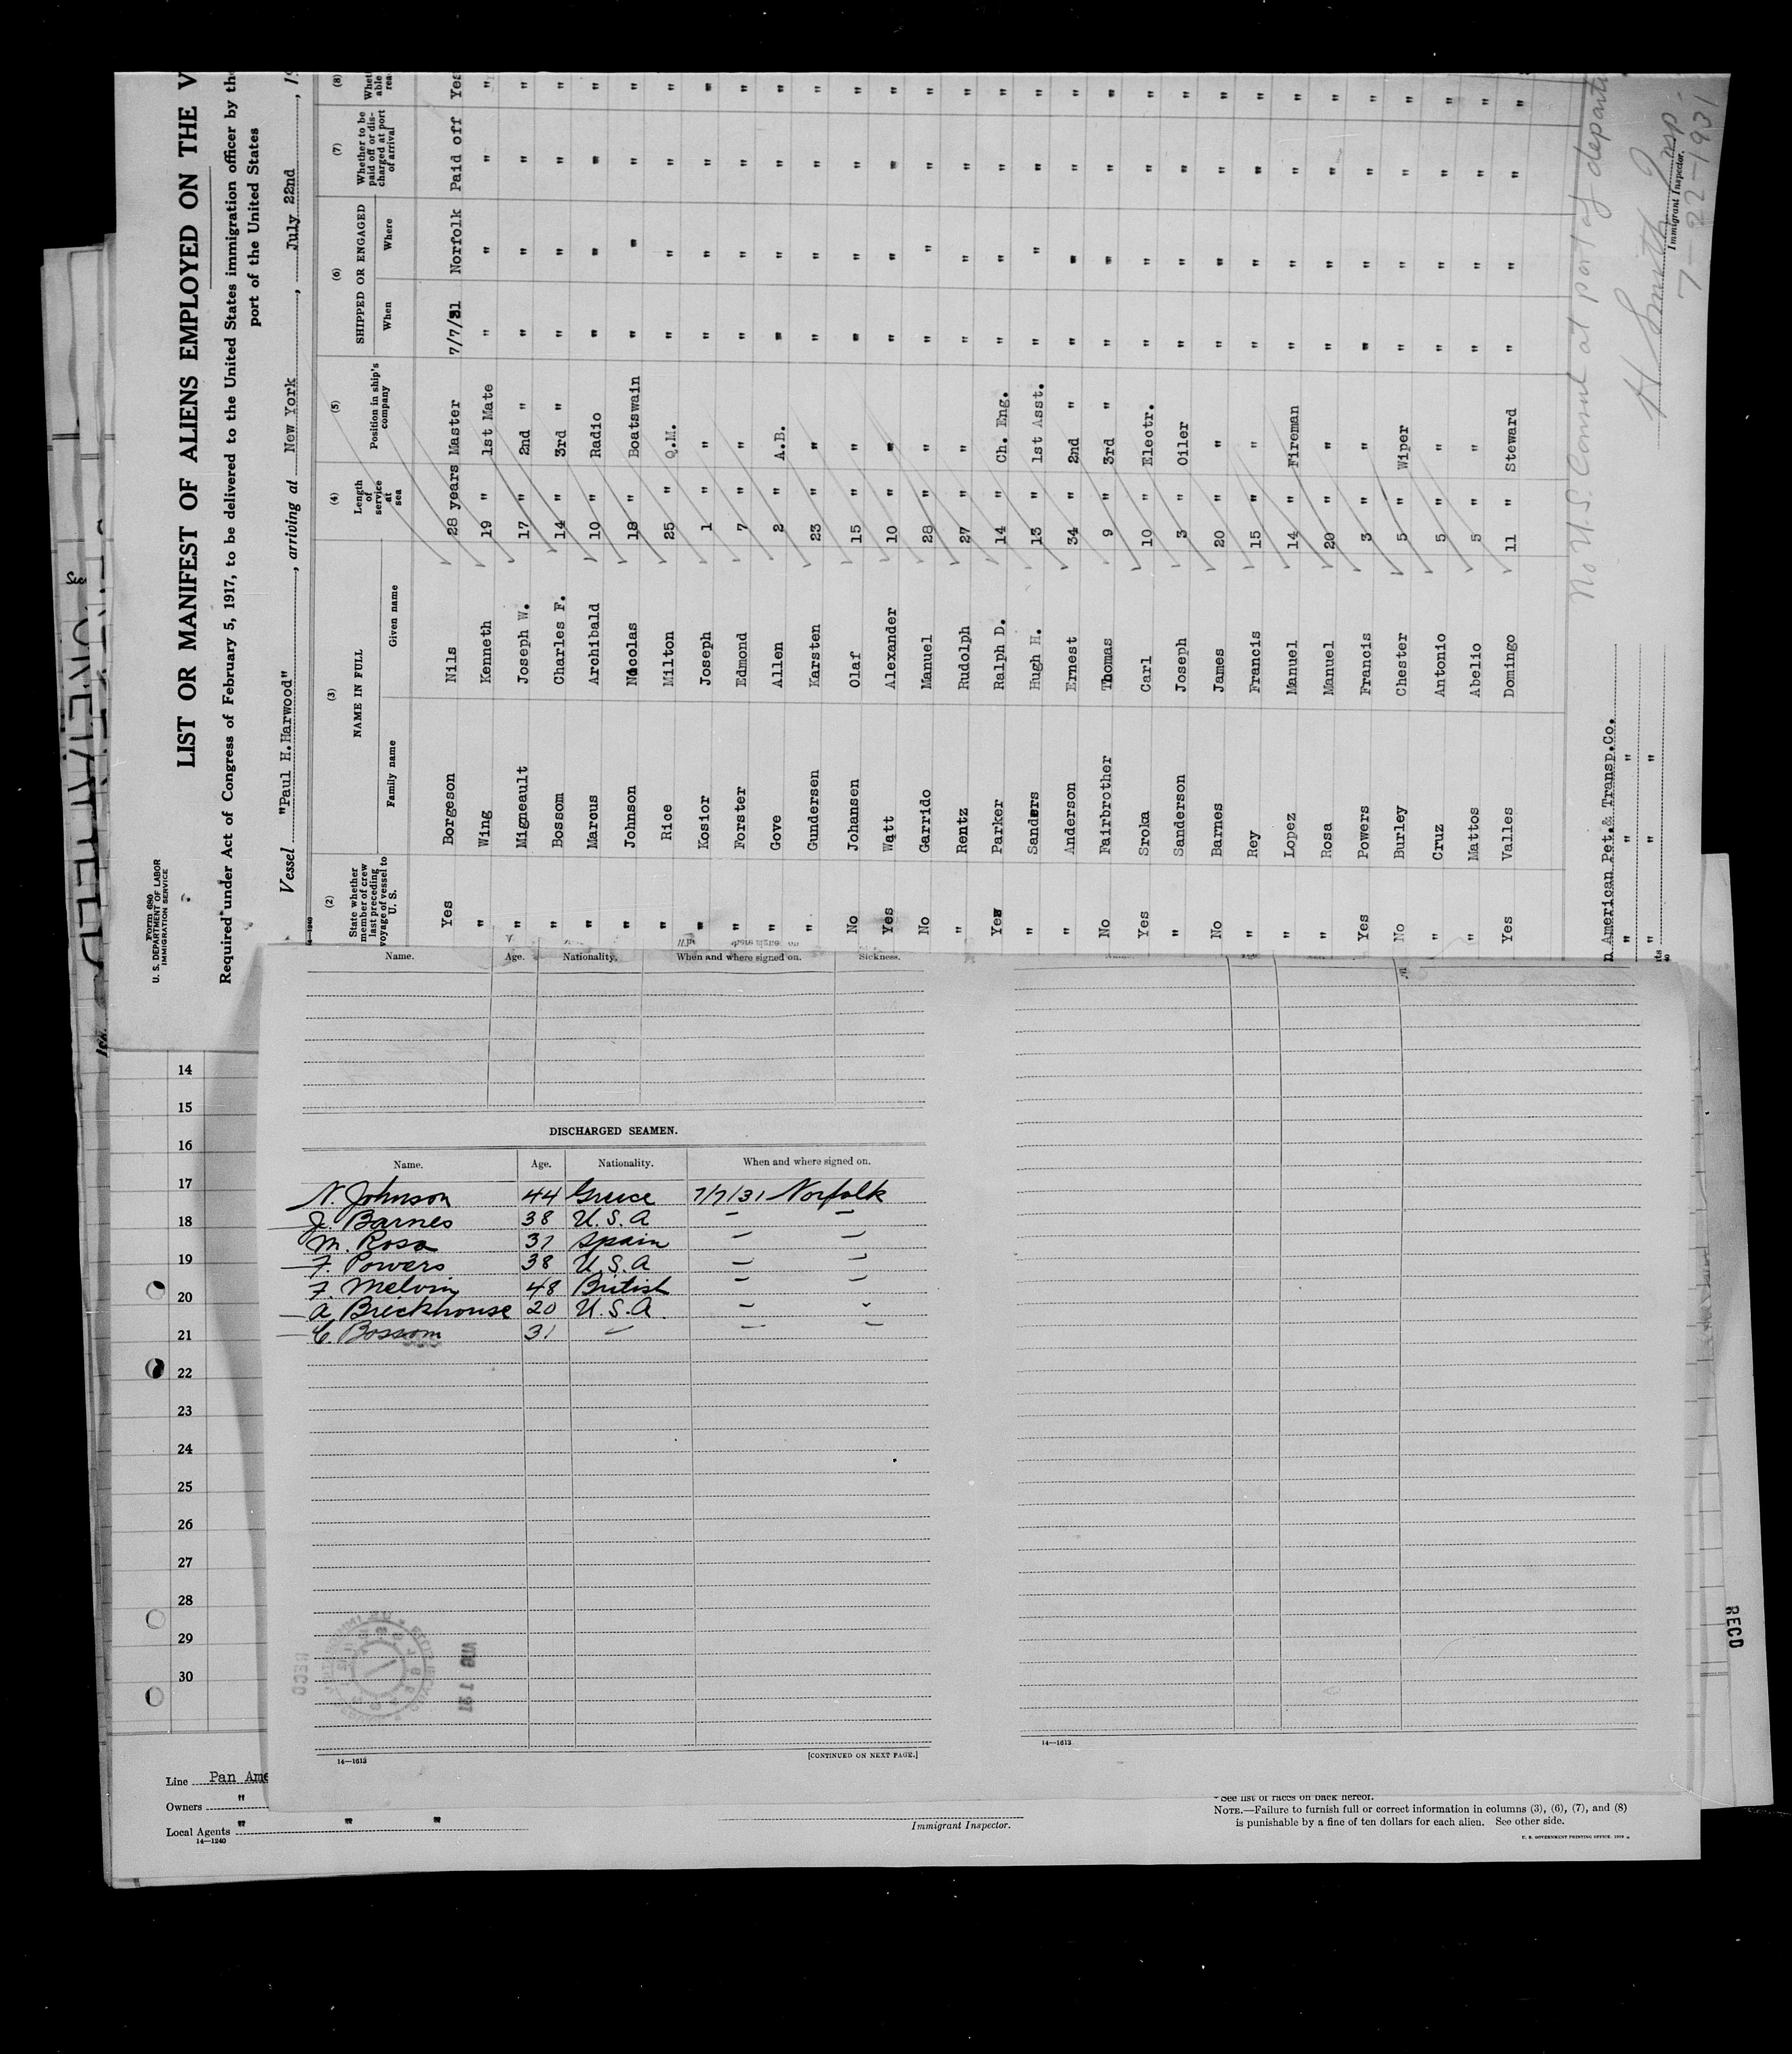 Form 680
U. S. DEPARTMENT OF LABOR
IMMIGRATION SERVICE
LIST OR MANIFEST OF ALIENS EMPLOYED ON THE V
Required under Act of Congress of February 5, 1917, to be delivered to the United States immigration officer by the
port of the United States
Vessel "Paul H.Harwood", arriving at New York, July 22nd, 19
(2) (3) (4) (5) (6) (7) (8)
State whether member of crew last preceding voyage of vessel to U. S.
NAME IN FULL
Family name Given name
Length of service at sea
Position in ship's company
SHIPPED OR ENGAGED
When Where
Whether to be paid off or discharged at port of arrival
Yes Borgeson Nils 28 years Master 7/7/31 Norfolk Paid off Yes
" Wing Kenneth 19 " 1st Mate " " " "
" Migneault Joseph W. 17 " 2nd " " " " "
" Bossom Charles F. 14 " 3rd " " " " "
" Marcus Archibald 10 " Radio " " " "
" Johnson Nicolas 18 " Boatswain " " " "
" Rice Milton 25 " Q.M. " " " "
" Kosior Joseph 1 " " " " " "
" Forster Edmond 7 " " " " " "
" Gove Allen 2 " A.B. " " " "
" Gundersen Karsten 23 " " " " " "
No Johansen Olaf 15 " " " " " "
Yes Watt Alexander 10 " " " " " "
No Garrido Manuel 28 " " " " " "
" Rentz Rudolph 27 " " " " " "
Yes Parker Ralph D. 14 " Ch. Eng. " " " "
" Sanders Hugh H. 13 " 1st Asst. " " " "
" Anderson Ernest 34 " 2nd " " " " "
No Fairbrother Thomas 9 " 3rd " " " " "
Yes Sroka Carl 10 " Electr. " " " "
" Sanderson Joseph 3 " Oiler " " " "
No Barnes James 20 " " " " " "
" Rey Francis 15 " " " " " "
" Lopez Manuel 14 " Fireman " " " "
" Rosa Manuel 20 " " " " " "
Yes Powers Francis 3 " " " " " "
No Burley Chester 5 " Wiper " " " "
" Cruz Antonio 5 " " " " " "
" Mattos Abelio 5 " " " " " "
Yes Valles Domingo 11 " Steward " " " "
No U.S. Consul at port of departu
n American Pet.& Transp.Co.
" " "
" " "
H Smith Insp.
Immigrant Inspector.
7-22-1931
Name. Age. Nationality. When and where signed on. Sickness.
DISCHARGED SEAMEN.
Name. Age. Nationality. When and where signed on.
N. Johnson 44 Greece 7/7/31 Norfolk
J. Barnes 38 U.S.A
M. Rosa 37 Spain
F. Powers 38 U.S.A
F. Melvin 48 British
A Brickhouse 20 U.S.A
C. Bossom 31
14—1613
[CONTINUED ON NEXT PAGE.]
14—1613
14
15
16
17
18
19
20
21
22
23
24
25
26
27
28
29
30
RECD
AUG 1 31
RECD
Line Pan Ame
Owners "
Local Agents " " "
14—1240
Immigrant Inspector.
* See list of races on back hereof.
NOTE.—Failure to furnish full or correct information in columns (3), (6), (7), and (8)
is punishable by a fine of ten dollars for each alien. See other side.
U. S. GOVERNMENT PRINTING OFFICE: 1929